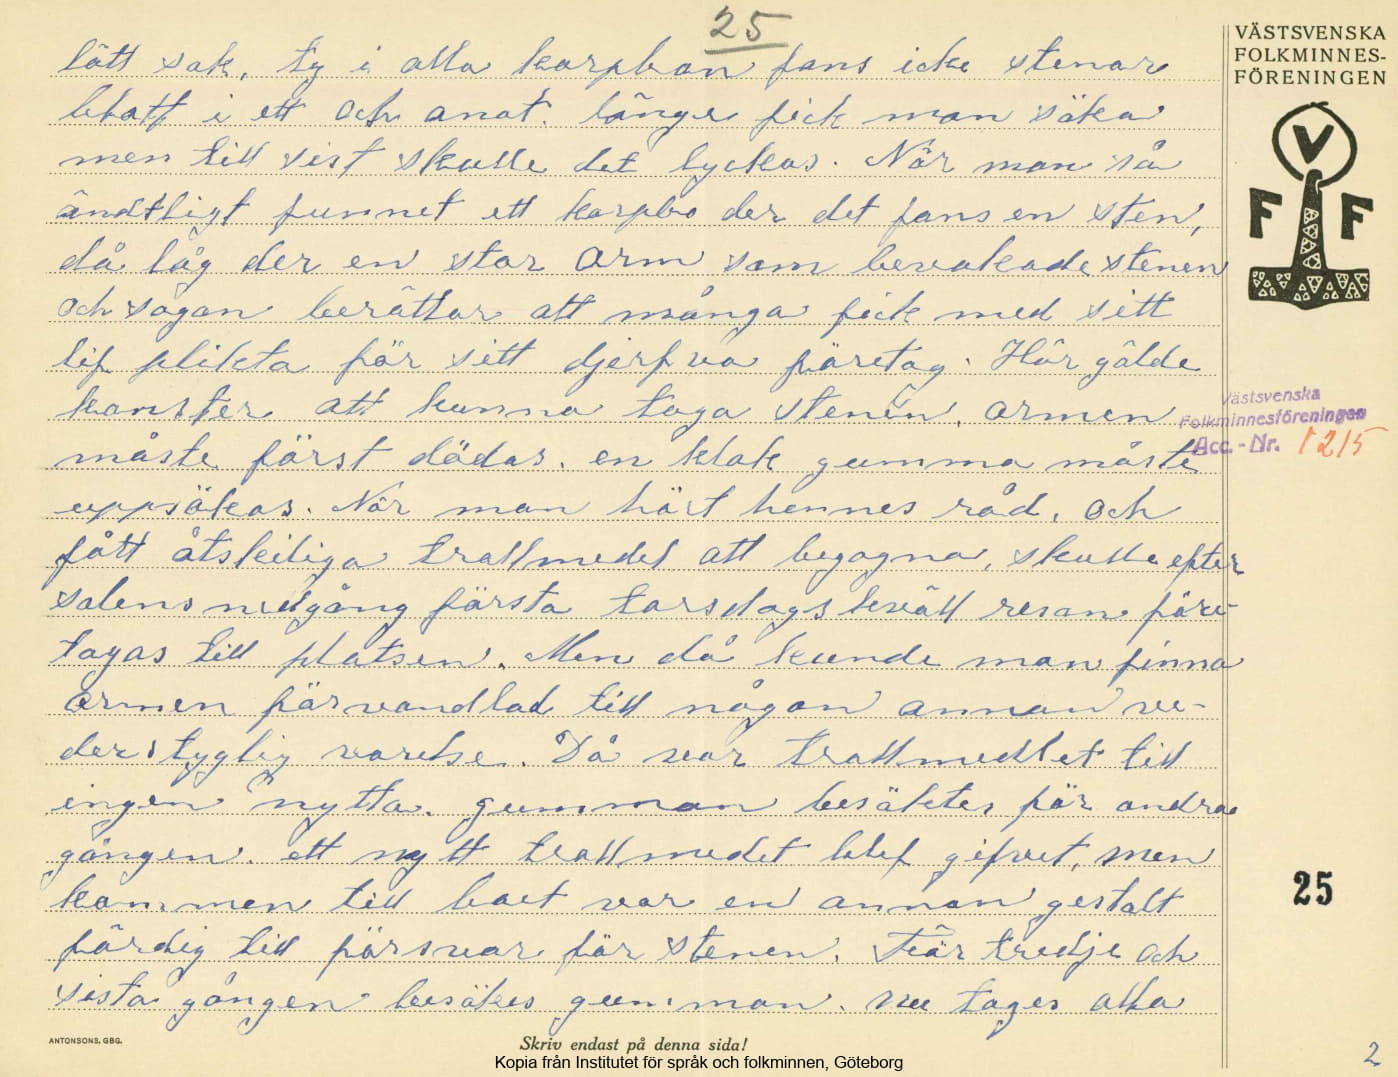 25
VÄSTSVENSKA
FOLKMINNES-
FÖRENINGEN
V
F F
lätt sak, ty i alla korpbon fans icke stenar
blott i ett och anat. länge fick man söka
men till sist skulle det lyckas. När man så
ändtligt funnet ett korpbo der det fans en sten,
då låg der en stor orm som bevakade stenen
och sagan berättar att många fick med sitt
lif plikta för sitt djerfva företag. Här gälde
konster att kunna taga stenen, ormen
måste först dödas. en klok gumma måste
uppsökas. När man hört hennes råd, och
fått åtskiliga trollmedel att begagna, skulle efter
solens nedgång första torsdagskväll resan före-
tagas till platsen. Men då kunde man finna
ormen förvandlad till någon annan ve-
derstyglig varelse. Då var trollmedlet till
ingen nytta. gumman besöktes för andra
gången. ett nytt trollmedel blef gifvet, men
kommen till boet var en annan gestalt
färdig till försvar för stenen. För tredje och
sista gången besökes gumman. nu tages alla
Västsvenska
Folkminnesföreningen
Acc. - Nr. 1215
25
ANTONSONS, GBG.
Skriv endast på denna sida!
Kopia från Institutet för språk och folkminnen, Göteborg
2